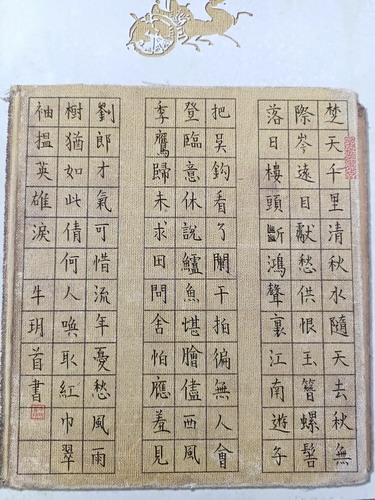 楚天千里清秋水隨天去秋無
際岑遠目獻愁供恨玉簪螺髻
落日樓頭斷鴻聲裏江南遊子
把吳鈎看了闌干拍徧無人會
登臨意休說鱸魚堪膾儘西風
季鷹歸未求田問舍怕應羞見
劉郎才氣可惜流年憂愁風雨
樹猶如此倩何人喚取紅巾翠
袖搵英雄淚 牛玥首書